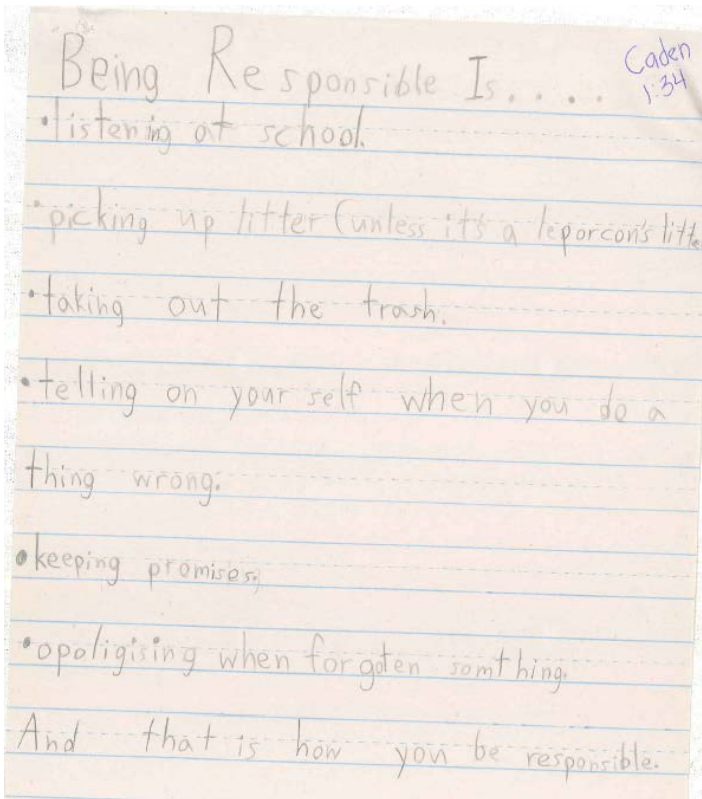 Being Responsible Is....
Caden
1:34
•listening at school.
•picking up litter (unless it's a leporcon's litte
•taking out the trash.
•telling on your self when you do a
thing wrong.
•keeping promises.
•opoligising when forgoten somthing.
And that is how you be responsible.